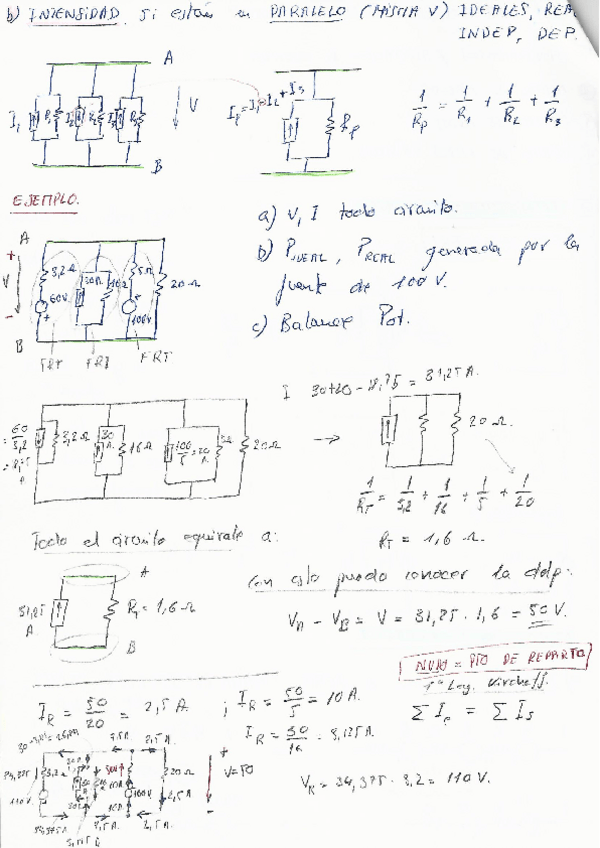 b) INTENSIDAD si están en PARALELO (MISMA V) IDEALES, REA
INDEP, DEP.
A
I₁ R₁ I₂ R₂ I₃ R₃
V
B
Ip = I₁ - I₂ + I₃
Rp
1/Rp = 1/R₁ + 1/R₂ + 1/R₃
EJEMPLO.
A
+
V
-
B
3,2Ω
60V
+
30A
16Ω
5Ω
100V
20Ω
FRT FRI FRT
a) V, I todo circuito.
b) P IDEAL, P REAL generada por la
fuente de 100 V.
c) Balance Pot.
I 30+20-18,75 = 31,25 A.
= 60/3,2
= 18,75 A
3,2Ω
30 A.
16Ω
100/5 = 20 A.
5Ω
20Ω
→
20Ω.
1/RT = 1/3,2 + 1/16 + 1/5 + 1/20
RT = 1,6 Ω.
Todo el circuito equivale a:
A
31,25 A
RT = 1,6 Ω
B
Con esto puedo conocer la ddp:
VA - VB = V = 31,25 · 1,6 = 50 V.
NUDO = PTO DE REPARTO
1ª Ley Kirchoff.
Σ Ie = Σ Is
IR = 50/20 = 2,5 A. ; IR = 50/5 = 10 A.
IR = 50/16 = 3,125 A.
VR = 34,375 · 3,2 = 110 V.
7,5A. 2,5A.
34,375
3,2Ω
110V
100V
20Ω
2,5A
+
V=50
-
34,375A 7,5A. 10A. 2,5A.
3,125